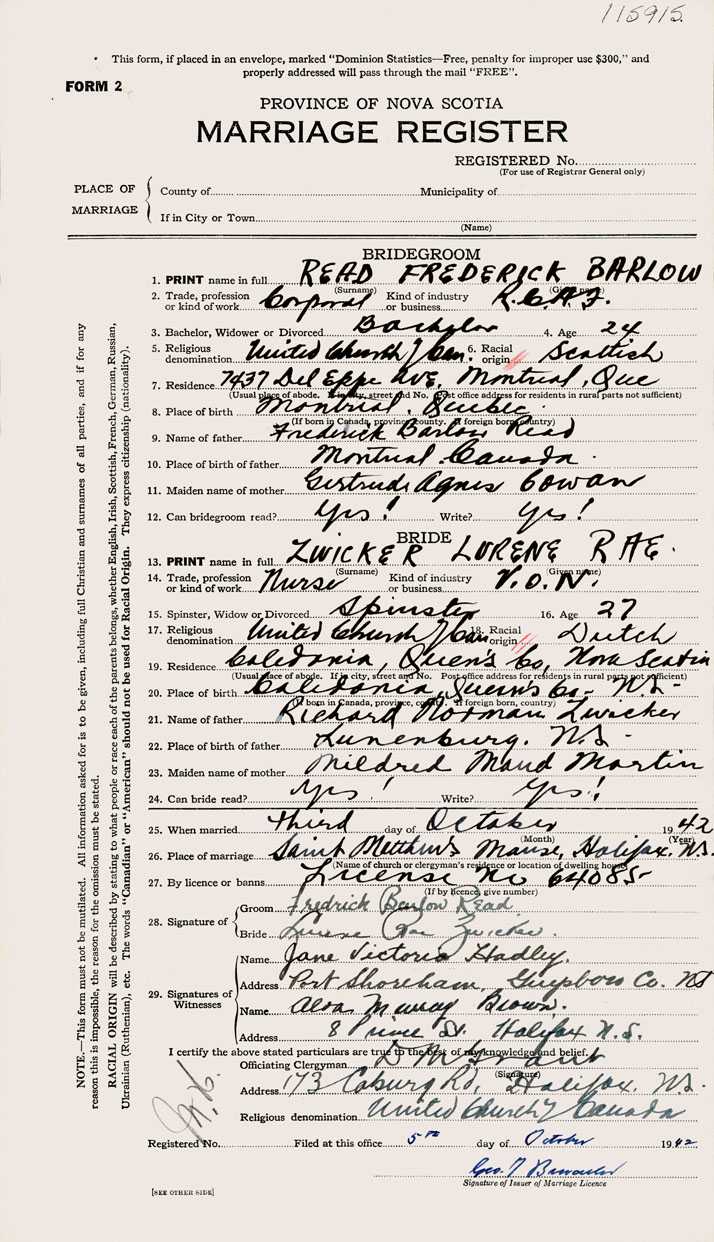 115915
This form, if placed in an envelope, marked "Dominion Statistics—Free, penalty for improper use $300," and
properly addressed will pass through the mail "FREE".
FORM 2
PROVINCE OF NOVA SCOTIA
MARRIAGE REGISTER
REGISTERED No.
(For use of Registrar General only)
PLACE OF MARRIAGE
County of Municipality of
If in City or Town
(Name)
BRIDEGROOM
1. PRINT name in full READ FREDERICK BARLOW
(Surname) (Given name)
2. Trade, profession or kind of work Corporal Kind of industry or business R.C.A.F.
3. Bachelor, Widower or Divorced Bachelor 4. Age 24
5. Religious denomination United Church of Can. 6. Racial origin Scottish
7. Residence 7437 Del Eppe Ave. Montreal, Que
(Usual place of abode. If in city, street and No. Post office address for residents in rural parts not sufficient)
8. Place of birth Montreal, Quebec
(If born in Canada, province, county. If foreign born, country)
9. Name of father Frederick Barlow Read
10. Place of birth of father Montreal Canada
11. Maiden name of mother Gertrude Agnes Cowan
12. Can bridegroom read? Yes! Write? Yes!
BRIDE
13. PRINT name in full ZWICKER LORENE RAE.
(Surname) (Given name)
14. Trade, profession or kind of work Nurse Kind of industry or business V.O.N.
15. Spinster, Widow or Divorced Spinster 16. Age 27
17. Religious denomination United Church of Can 18. Racial origin Dutch
19. Residence Caledonia, Queen's Co, Nova Scotia
(Usual place of abode. If in city, street and No. Post office address for residents in rural parts not sufficient)
20. Place of birth Caledonia, Queen's Co- N.S-
(If born in Canada, province, county. If foreign born, country)
21. Name of father Richard Norman Zwicker
22. Place of birth of father Lunenburg. N.S-
23. Maiden name of mother Mildred Maud Martin
24. Can bride read? Yes! Write? Yes!
25. When married Third day of October 1942
(Month) (Year)
26. Place of marriage Saint Matthew's Manse, Halifax. N.S.
(Name of church or clergyman's residence or location of dwelling house)
27. By licence or banns License No 64085-
(If by licence, give number)
28. Signature of
Groom Fredrick Barlow Read
Bride Lorene Rae Zwicker.
29. Signatures of Witnesses
Name Jane Victoria Hadley.
Address Port Shoreham, Guysboro Co. NS
Name Murray Brown.
Address 8 Prince St. Halifax N.S.
I certify the above stated particulars are true to the best of my knowledge and belief.
Officiating Clergyman D M Grant
(Signature)
Address 173 Coburg Rd, Halifax. N.S.
Religious denomination United Church of Canada
Registered No. Filed at this office 5th day of October 1942
Geo.
Signature of Issuer of Marriage Licence
[SEE OTHER SIDE]
NOTE.—This form must not be mutilated. All information asked for is to be given, including full Christian and surnames of all parties, and if for any
reason this is impossible, the reason for the omission must be stated.
RACIAL ORIGIN will be described by stating to what people or race each of the parents belongs, whether English, Irish, Scottish, French, German, Russian,
Ukrainian (Ruthenian), etc. The words "Canadian" or "American" should not be used for Racial Origin. They express citizenship (nationality).